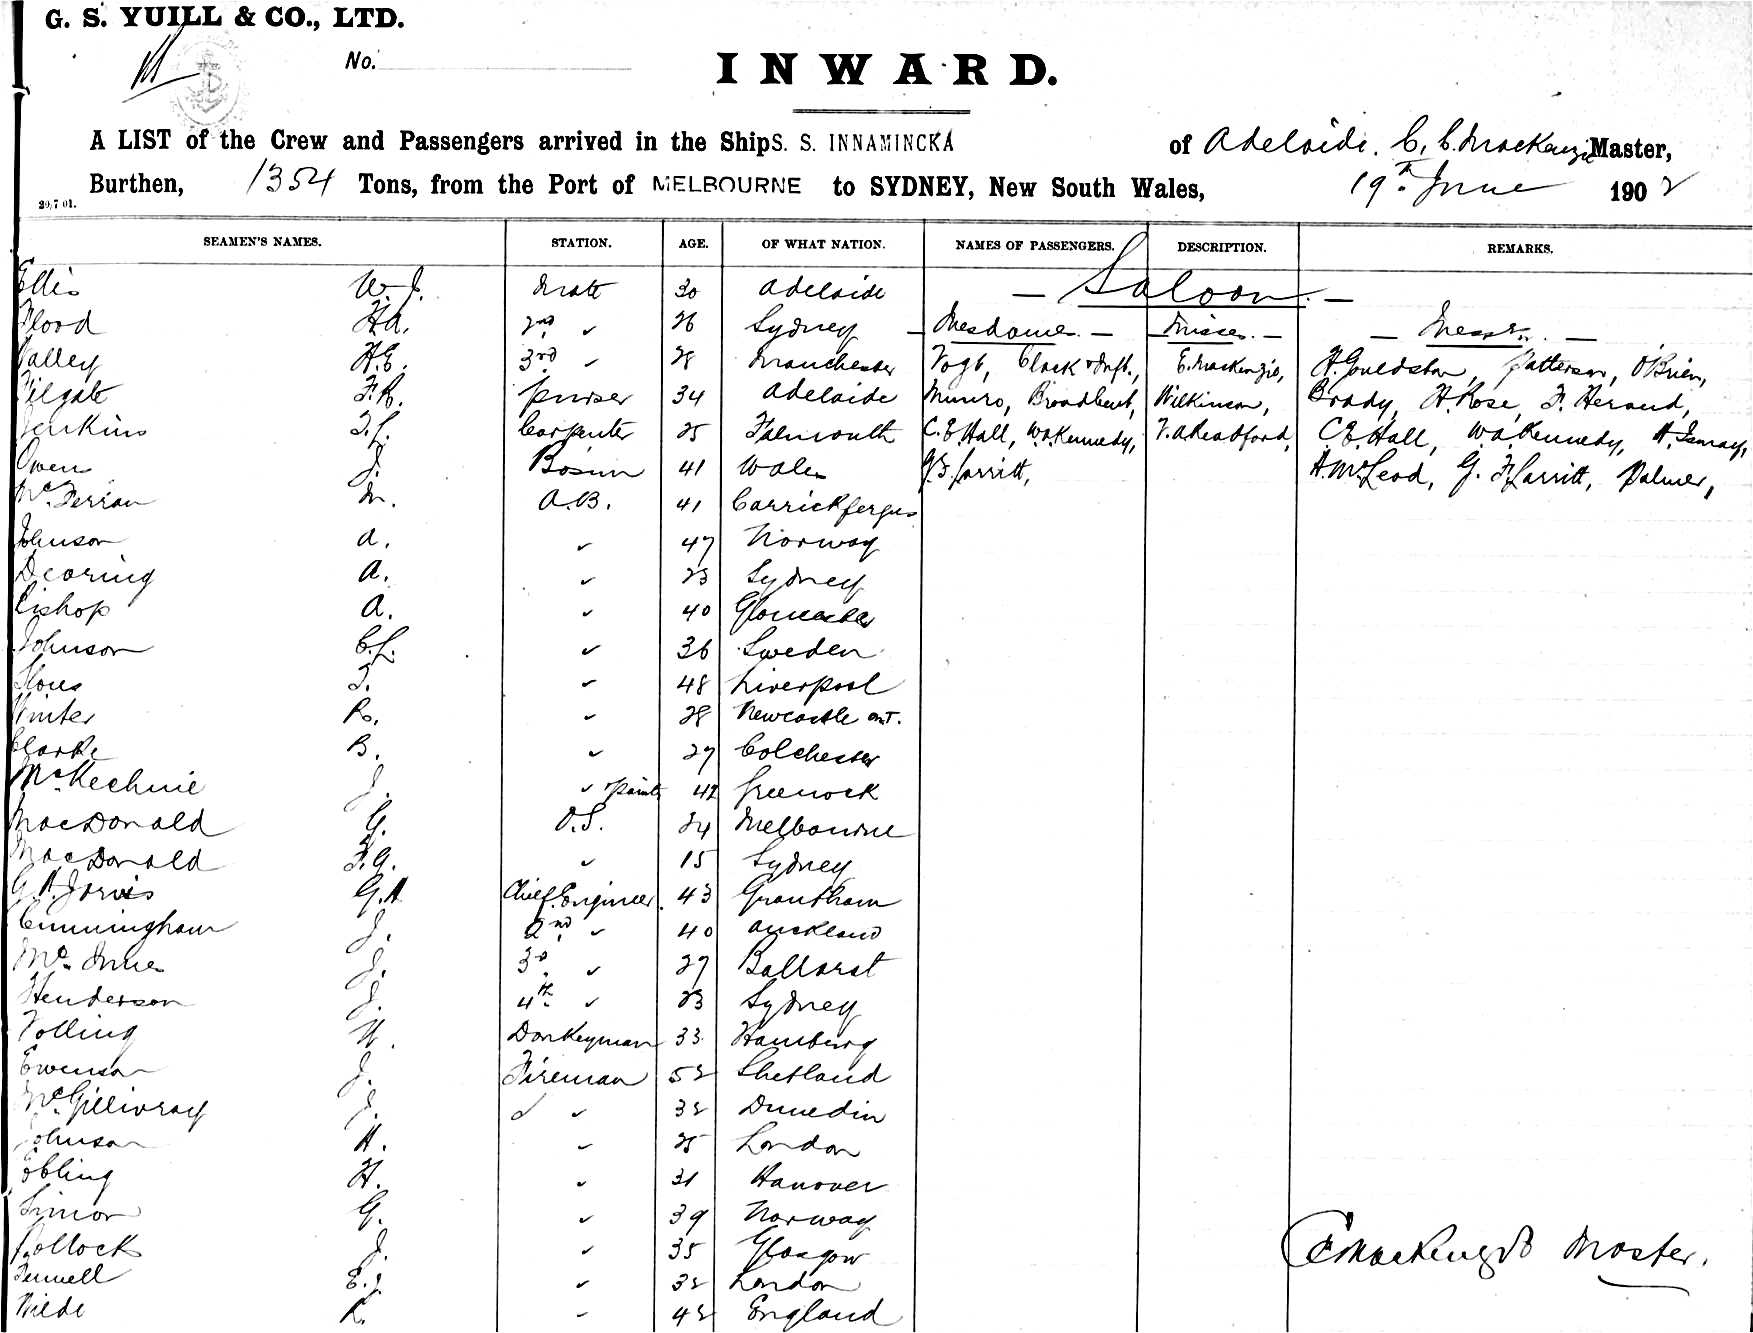 G. S. YUILL & CO., LTD.
No.
INWARD.
A LIST of the Crew and Passengers arrived in the Ship S. S. INNAMINCKA of Adelaide. C. C. MacKenzie Master,
Burthen, 1354 Tons, from the Port of MELBOURNE to SYDNEY, New South Wales, 19th June 1902
20/7/01.
SEAMEN'S NAMES. STATION. AGE. OF WHAT NATION. NAMES OF PASSENGERS. DESCRIPTION. REMARKS.
Ellis W. J. Mate 30 Adelaide — Saloon. —
Flood 2nd ✓ 26 Sydney — Mesdames. — Misses. — — Messrs. —
Valley H.E. 3rd ✓ 28 Manchester Vogt, Clack & Inft., E. MacKenzie, A. Gouldston, Patterson, O'Brien,
Pilgate F.R. Purser 34 Adelaide Munro, Broadbent, Wilkinson, Brady, H. Rose, F. Heraud,
Jenkins Carpenter 25 Falmouth C. E. Hall, W.A. Kennedy, V. A. Readford, C E Hall, W. A. Kennedy, A. Ismay,
Owen J. Bosun 41 Wales A. McLeod, G. F. Jarritt, Palmer,
Mc. Ferran M. A.B. 41 Carrickfergus
Johnson A. ✓ 47 Norway
Dearing A. ✓ 23 Sydney
Bishop A. ✓ 40 Gloucester
Johnson C.J. ✓ 36 Sweden
T. ✓ 48 Liverpool
Winter R. ✓ 28 Newcastle
Clarke B. ✓ 27 Colchester
McKechnie J. ✓ 42 Greenock
MacDonald G. O.S. 24 Melbourne
MacDonald F.G. ✓ 15 Sydney
G. A. Jarvis G.A. Chief Engineer. 43 Grantham
Cunningham J. 2nd ✓ 40 Auckland
Mc. Innes J. 3rd ✓ 27 Ballarat
Henderson J. 4th ✓ 23 Sydney
Volling H. Donkeyman 33 Hamburg
Ewenson J. Fireman 52 Shetland
McGillivray J. ✓ 32 Dunedin
Johnson H. ✓ 25 London
Ebling H. ✓ 31 Hanover
Simon G. ✓ 39 Norway
Pollock J. ✓ 35 Glasgow
Fennell E.J. ✓ 32 London
Wilde R. ✓ 42 England
C C MacKenzie Master.